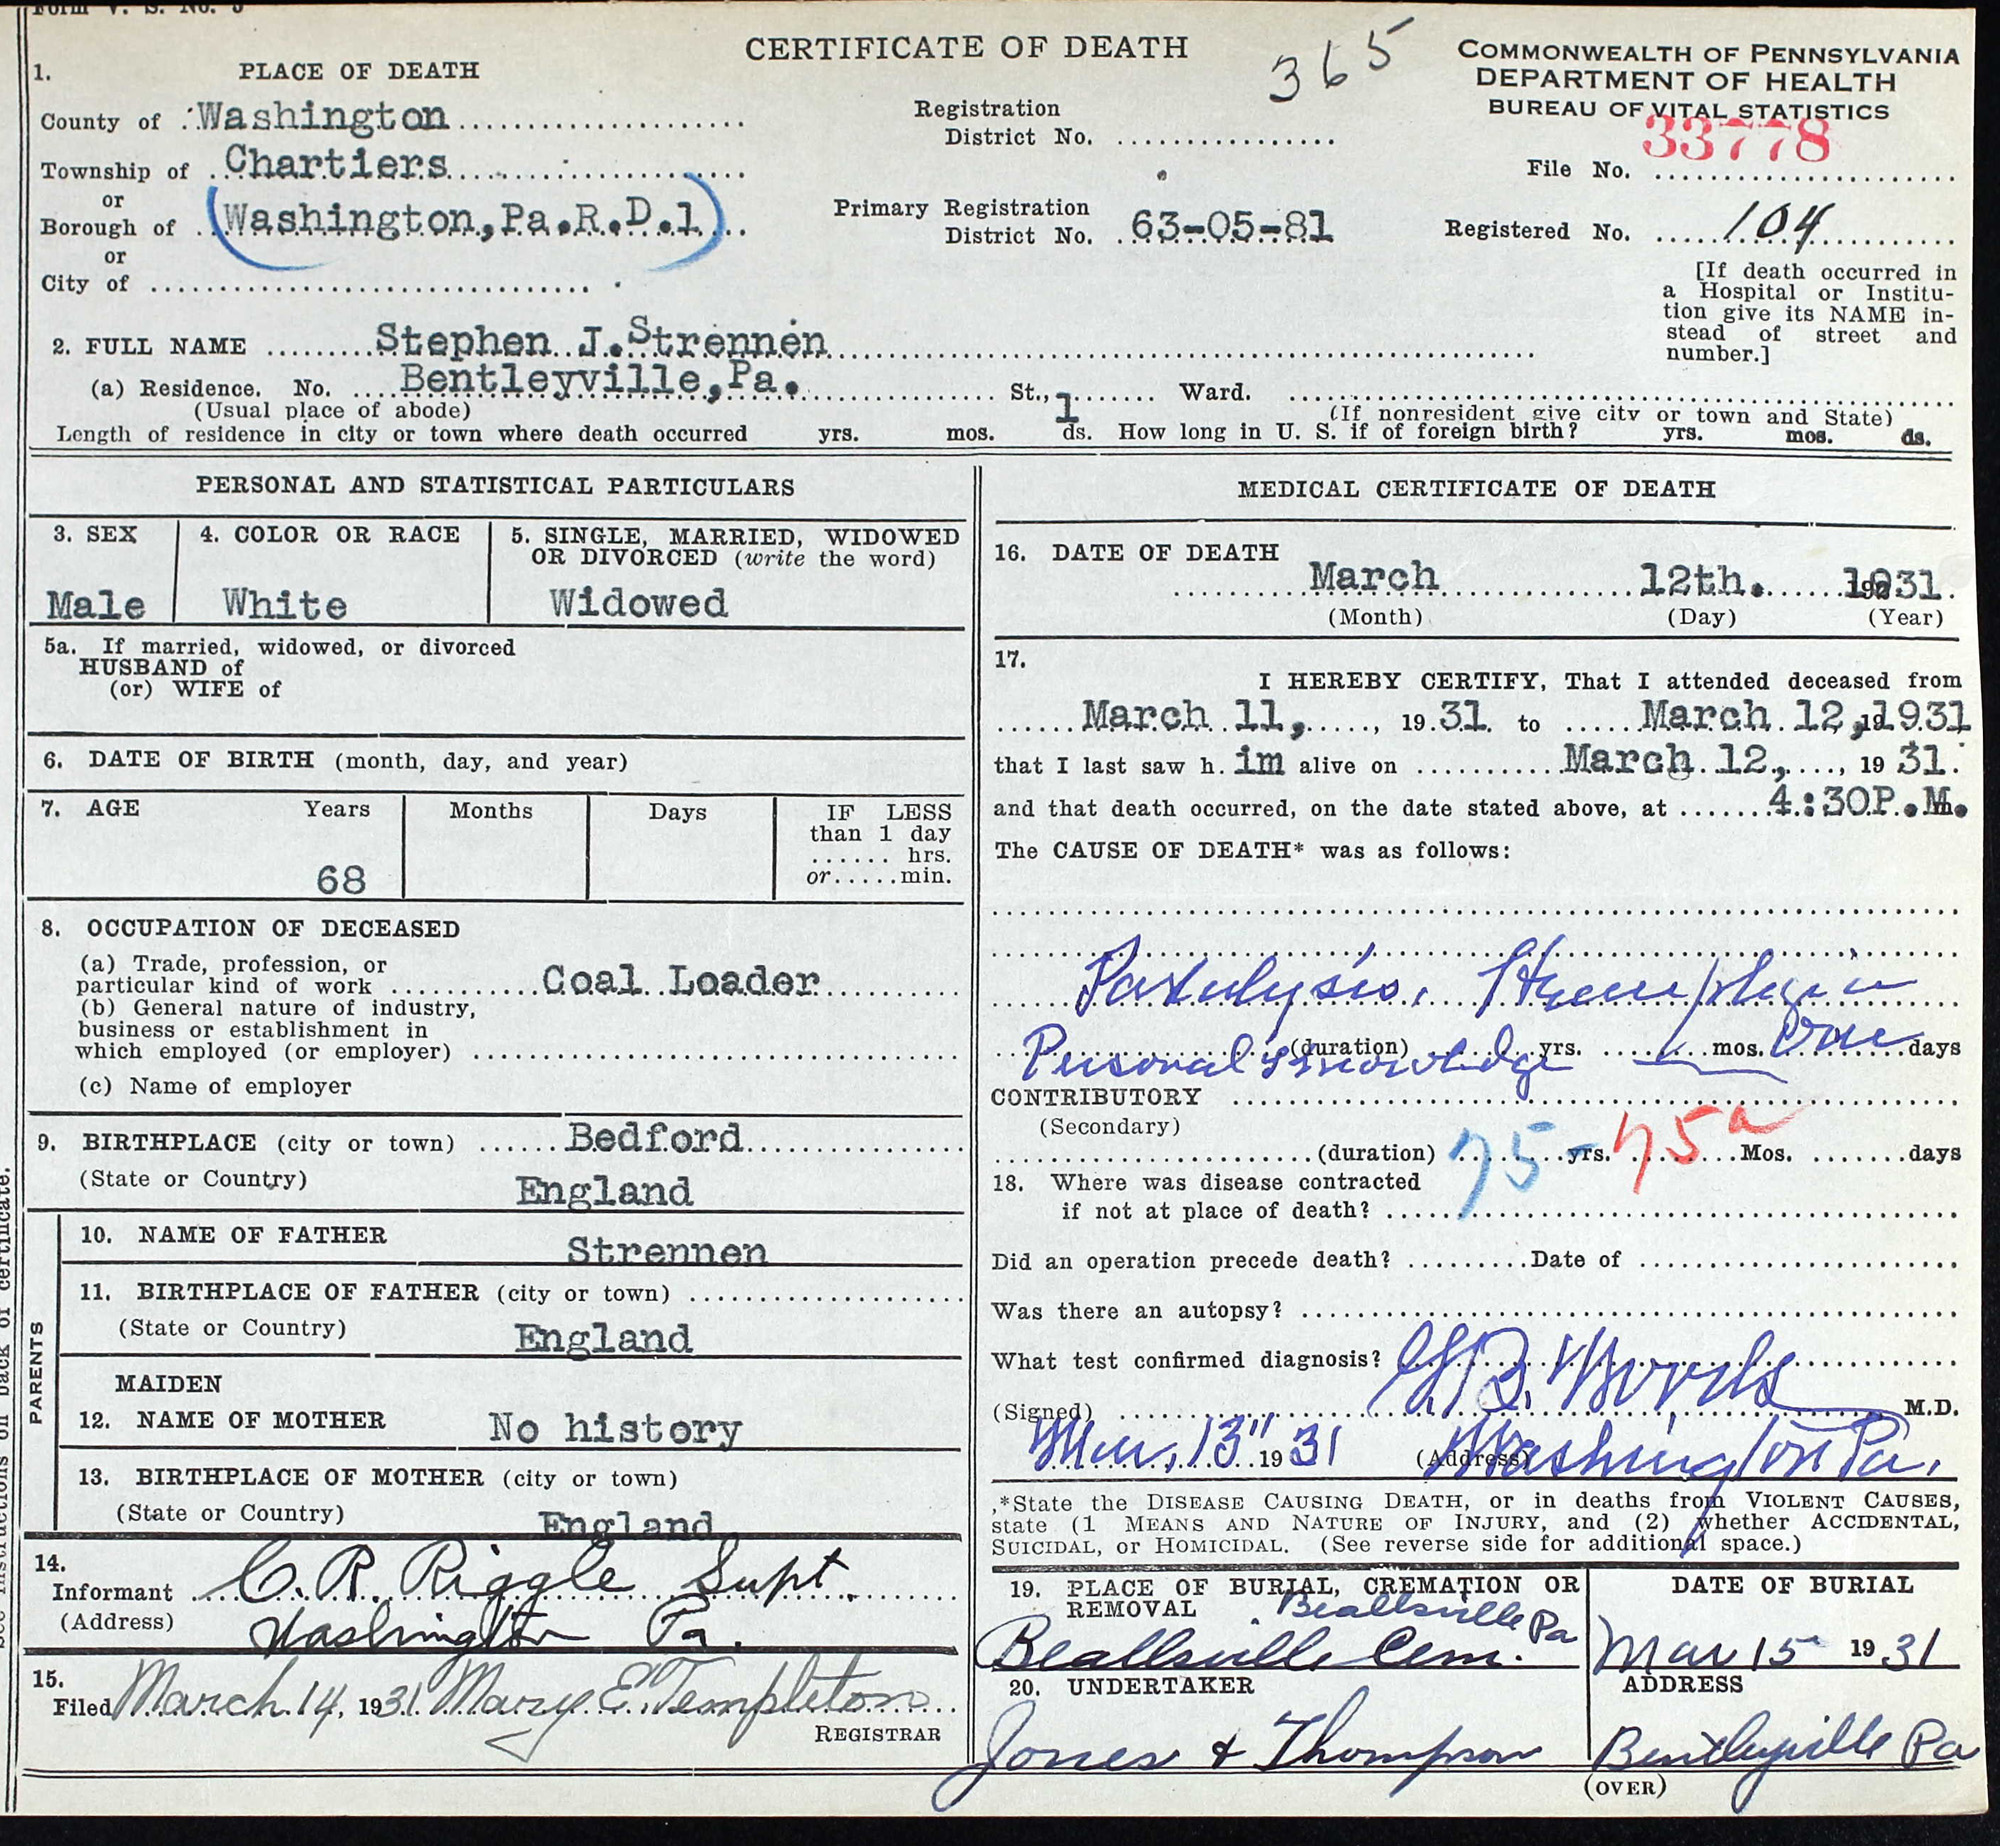 Form V. S. No. 5
CERTIFICATE OF DEATH
365
COMMONWEALTH OF PENNSYLVANIA
DEPARTMENT OF HEALTH
BUREAU OF VITAL STATISTICS
1. PLACE OF DEATH
County of Washington
Township of Chartiers
or
Borough of (Washington, Pa. R.D.1)
or
City of
Registration
District No.
Primary Registration
District No. 63-05-81
33778
File No.
Registered No. 104
[If death occurred in
a Hospital or Institu-
tion give its NAME in-
stead of street and
number.]
2. FULL NAME Stephen J. Strennen
(a) Residence. No. Bentleyville, Pa. St., Ward.
(Usual place of abode) (If nonresident give city or town and State)
Length of residence in city or town where death occurred yrs. mos. 1 ds. How long in U. S. if of foreign birth? yrs. mos. ds.
PERSONAL AND STATISTICAL PARTICULARS
3. SEX
Male
4. COLOR OR RACE
White
5. SINGLE, MARRIED, WIDOWED
OR DIVORCED (write the word)
Widowed
5a. If married, widowed, or divorced
HUSBAND of
(or) WIFE of
6. DATE OF BIRTH (month, day, and year)
7. AGE Years Months Days
68
IF LESS
than 1 day
hrs.
or min.
8. OCCUPATION OF DECEASED
(a) Trade, profession, or
particular kind of work Coal Loader
(b) General nature of industry,
business or establishment in
which employed (or employer)
(c) Name of employer
9. BIRTHPLACE (city or town) Bedford
(State or Country) England
PARENTS
10. NAME OF FATHER Strennen
11. BIRTHPLACE OF FATHER (city or town)
(State or Country) England
MAIDEN
12. NAME OF MOTHER No history
13. BIRTHPLACE OF MOTHER (city or town)
(State or Country) England
14.
Informant C. R. Riggle Supt.
(Address) Washington Pa.
15.
Filed March 14, 1931 Mary E. Templeton
REGISTRAR
See instructions on back of certificate.
MEDICAL CERTIFICATE OF DEATH
16. DATE OF DEATH
March 12th. 1931
(Month) (Day) (Year)
17.
I HEREBY CERTIFY, That I attended deceased from
March 11, 19 31 to March 12, 1931
that I last saw h im alive on March 12, 19 31.
and that death occurred, on the date stated above, at 4:30P.M.
The CAUSE OF DEATH* was as follows:
Paralysis, Hemiplegia
(duration) yrs. mos. One days
Personal Knowledge
CONTRIBUTORY
(Secondary)
(duration) yrs. Mos. days
75-75a
18. Where was disease contracted
if not at place of death?
Did an operation precede death? Date of
Was there an autopsy?
What test confirmed diagnosis?
(Signed) G. B. Woods M.D.
Mar. 13" 19 31 (Address) Washington Pa.
*State the DISEASE CAUSING DEATH, or in deaths from VIOLENT CAUSES,
state (1 MEANS AND NATURE OF INJURY, and (2) whether ACCIDENTAL,
SUICIDAL, or HOMICIDAL. (See reverse side for additional space.)
19. PLACE OF BURIAL, CREMATION OR
REMOVAL Beallsville Pa
Beallsville Cem.
DATE OF BURIAL
Mar 15 19 31
20. UNDERTAKER
Jones & Thompson
ADDRESS
Bentleyville Pa
(OVER)